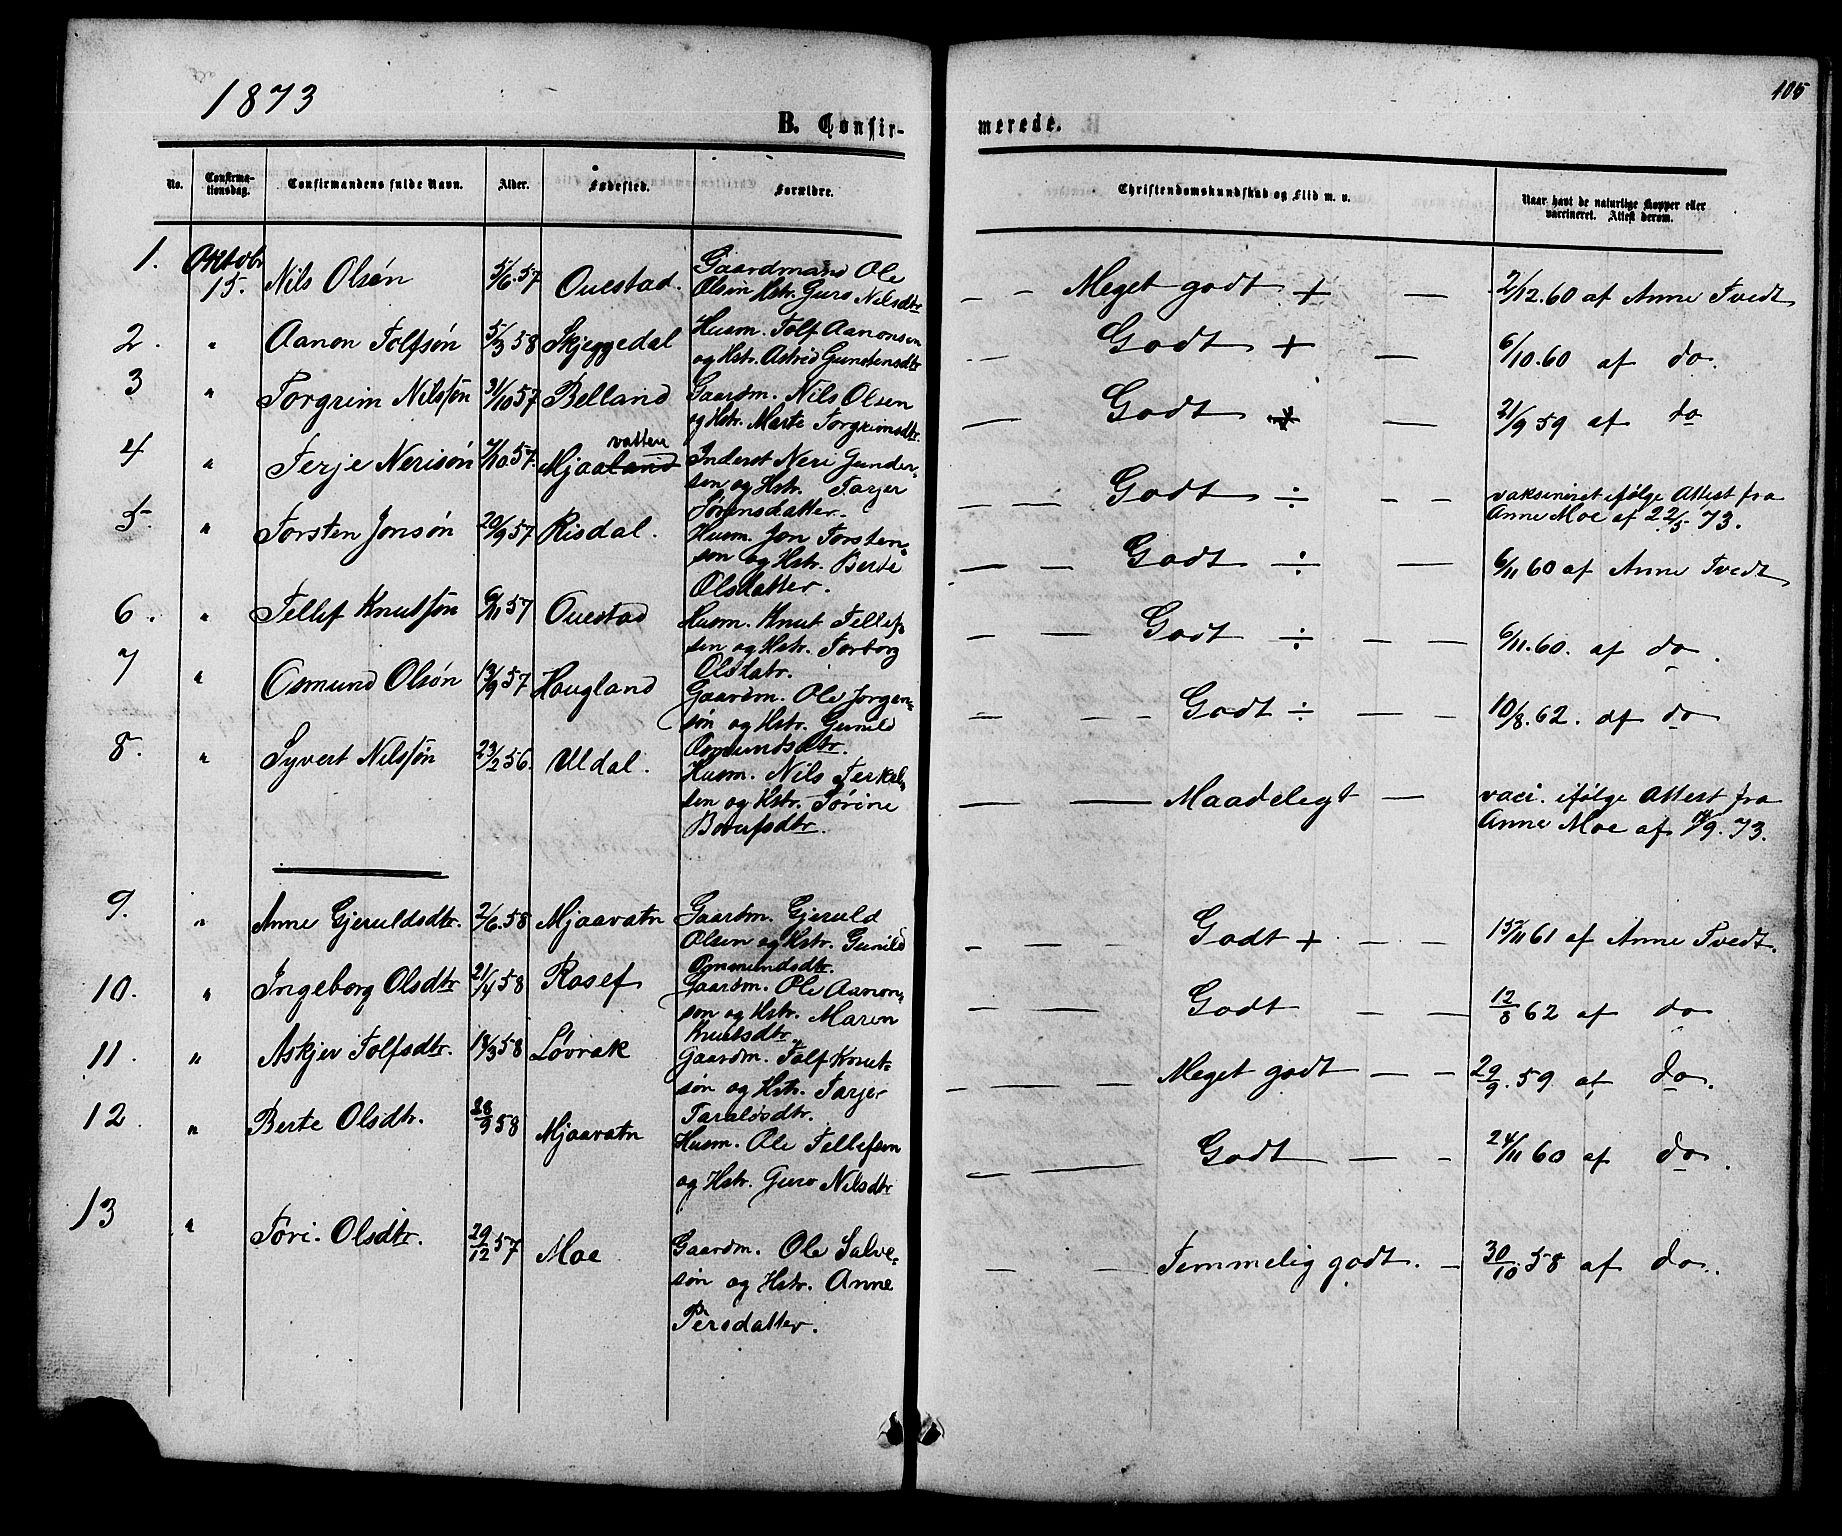 1873
105
B. Confir-
merede.
No.
Confirma-
tionsdag.
Confirmandens fulde Navn.
Alder.
Fødested.
Forældre.
Christendomskundskab og Flid m. v.
Naar havt de naturlige Kopper eller
vaccineret. Attest derom.
1. Oktobr 15. Nils Olsön 5/6.57 Ouestad. Gaardmand Ole
Olsön Hstr. Guro Nilsdtr
— — Meget godt + — 2/12.60 af Anne Tvedt
2. " Aanon Tolfsön 5/3 58 Skjeggedal Husm. Tolf Aanonsen
og Hstr. Astrid Gundensdtr
— Godt + — 6/10.60 af do.
3 " Torgrim Nilssön 31/10 57 Belland Gaardm. Nils Olsen
og Hstr. Marte Torgrimsdtr.
— Godt + — 21/9 59 af do
vatten
4 " Terje Nerisön 4/10 57. Mjaaland Inderst Neri Gunder-
sen og Hstr. Tarjer
Sörensdatter.
— Godt ÷ - — vaksineret ifölge Attest fra
Anne Moe af 22/5. 73.
5. " Torsten Jonsön 20/9 57 Risdal. Husm. Jon Torsten-
son og Hstr. Berte
Olsdatter.
— — Godt ÷ — 6/11 60 af Anne Tvedt
6. " Tellef Knutssön 6/11 57 Ouestad Husm. Knut Tellef-
sen og Hstr. Torborg
Olsdatr.
— — Godt ÷ — — 6/11.60. af do.
7 " Osmund Olsön 13/9 57 Hougland Gaardm. Ole Jorgen-
sön og Hstr. Gunild
Osmundsdtr.
— — — Godt ÷ — — 10/8.62. af do
8. " Syvert Nilssön 23/2 56. Uldal. Husm. Nils Terkel-
sen og Hstr. Törine
Bouufsdtr.
— — Maadelegt — vaci. ifölge Attest fra
Anne Moe af 18/9. 73.
9. " Anne Gjeruldsdtr. 2/6.58 Mjaavatn Gaardm. Gjeruld
Olsen og Hstr. Gunild
Ommundsdtr.
— — — Godt + — — 15/11 61 af Anne Tvedt.
10. " Ingeborg Olsdtr 21/4 58 Rosef Gaardm. Ole Aanon-
son og Hstr. Maren
Knutsdtr.
— — Godt — — 12/8 62 af do
11. " Askjer Tolfsdtr. 18/3 58 Lövrak Gaardm. Tolf Knut-
sön og Hstr. Tarjer
Taraldsdtr.
— — — Meget godt — — 29/9. 59 af do.
12. " Berte Olsdtr. 28/9 58 Mjaavatn Husm. Ole Tellefsen
og Hstr. Guro Nilsdtr
— — Godt — - 24/11 60 af do.
13 " Tori. Olsdtr. 29/12 57 Moe Gaardm. Ole Salve-
sön og Hstr. Anne
Persdatter.
— — Temmelig godt. — 30/10. 58 af do.